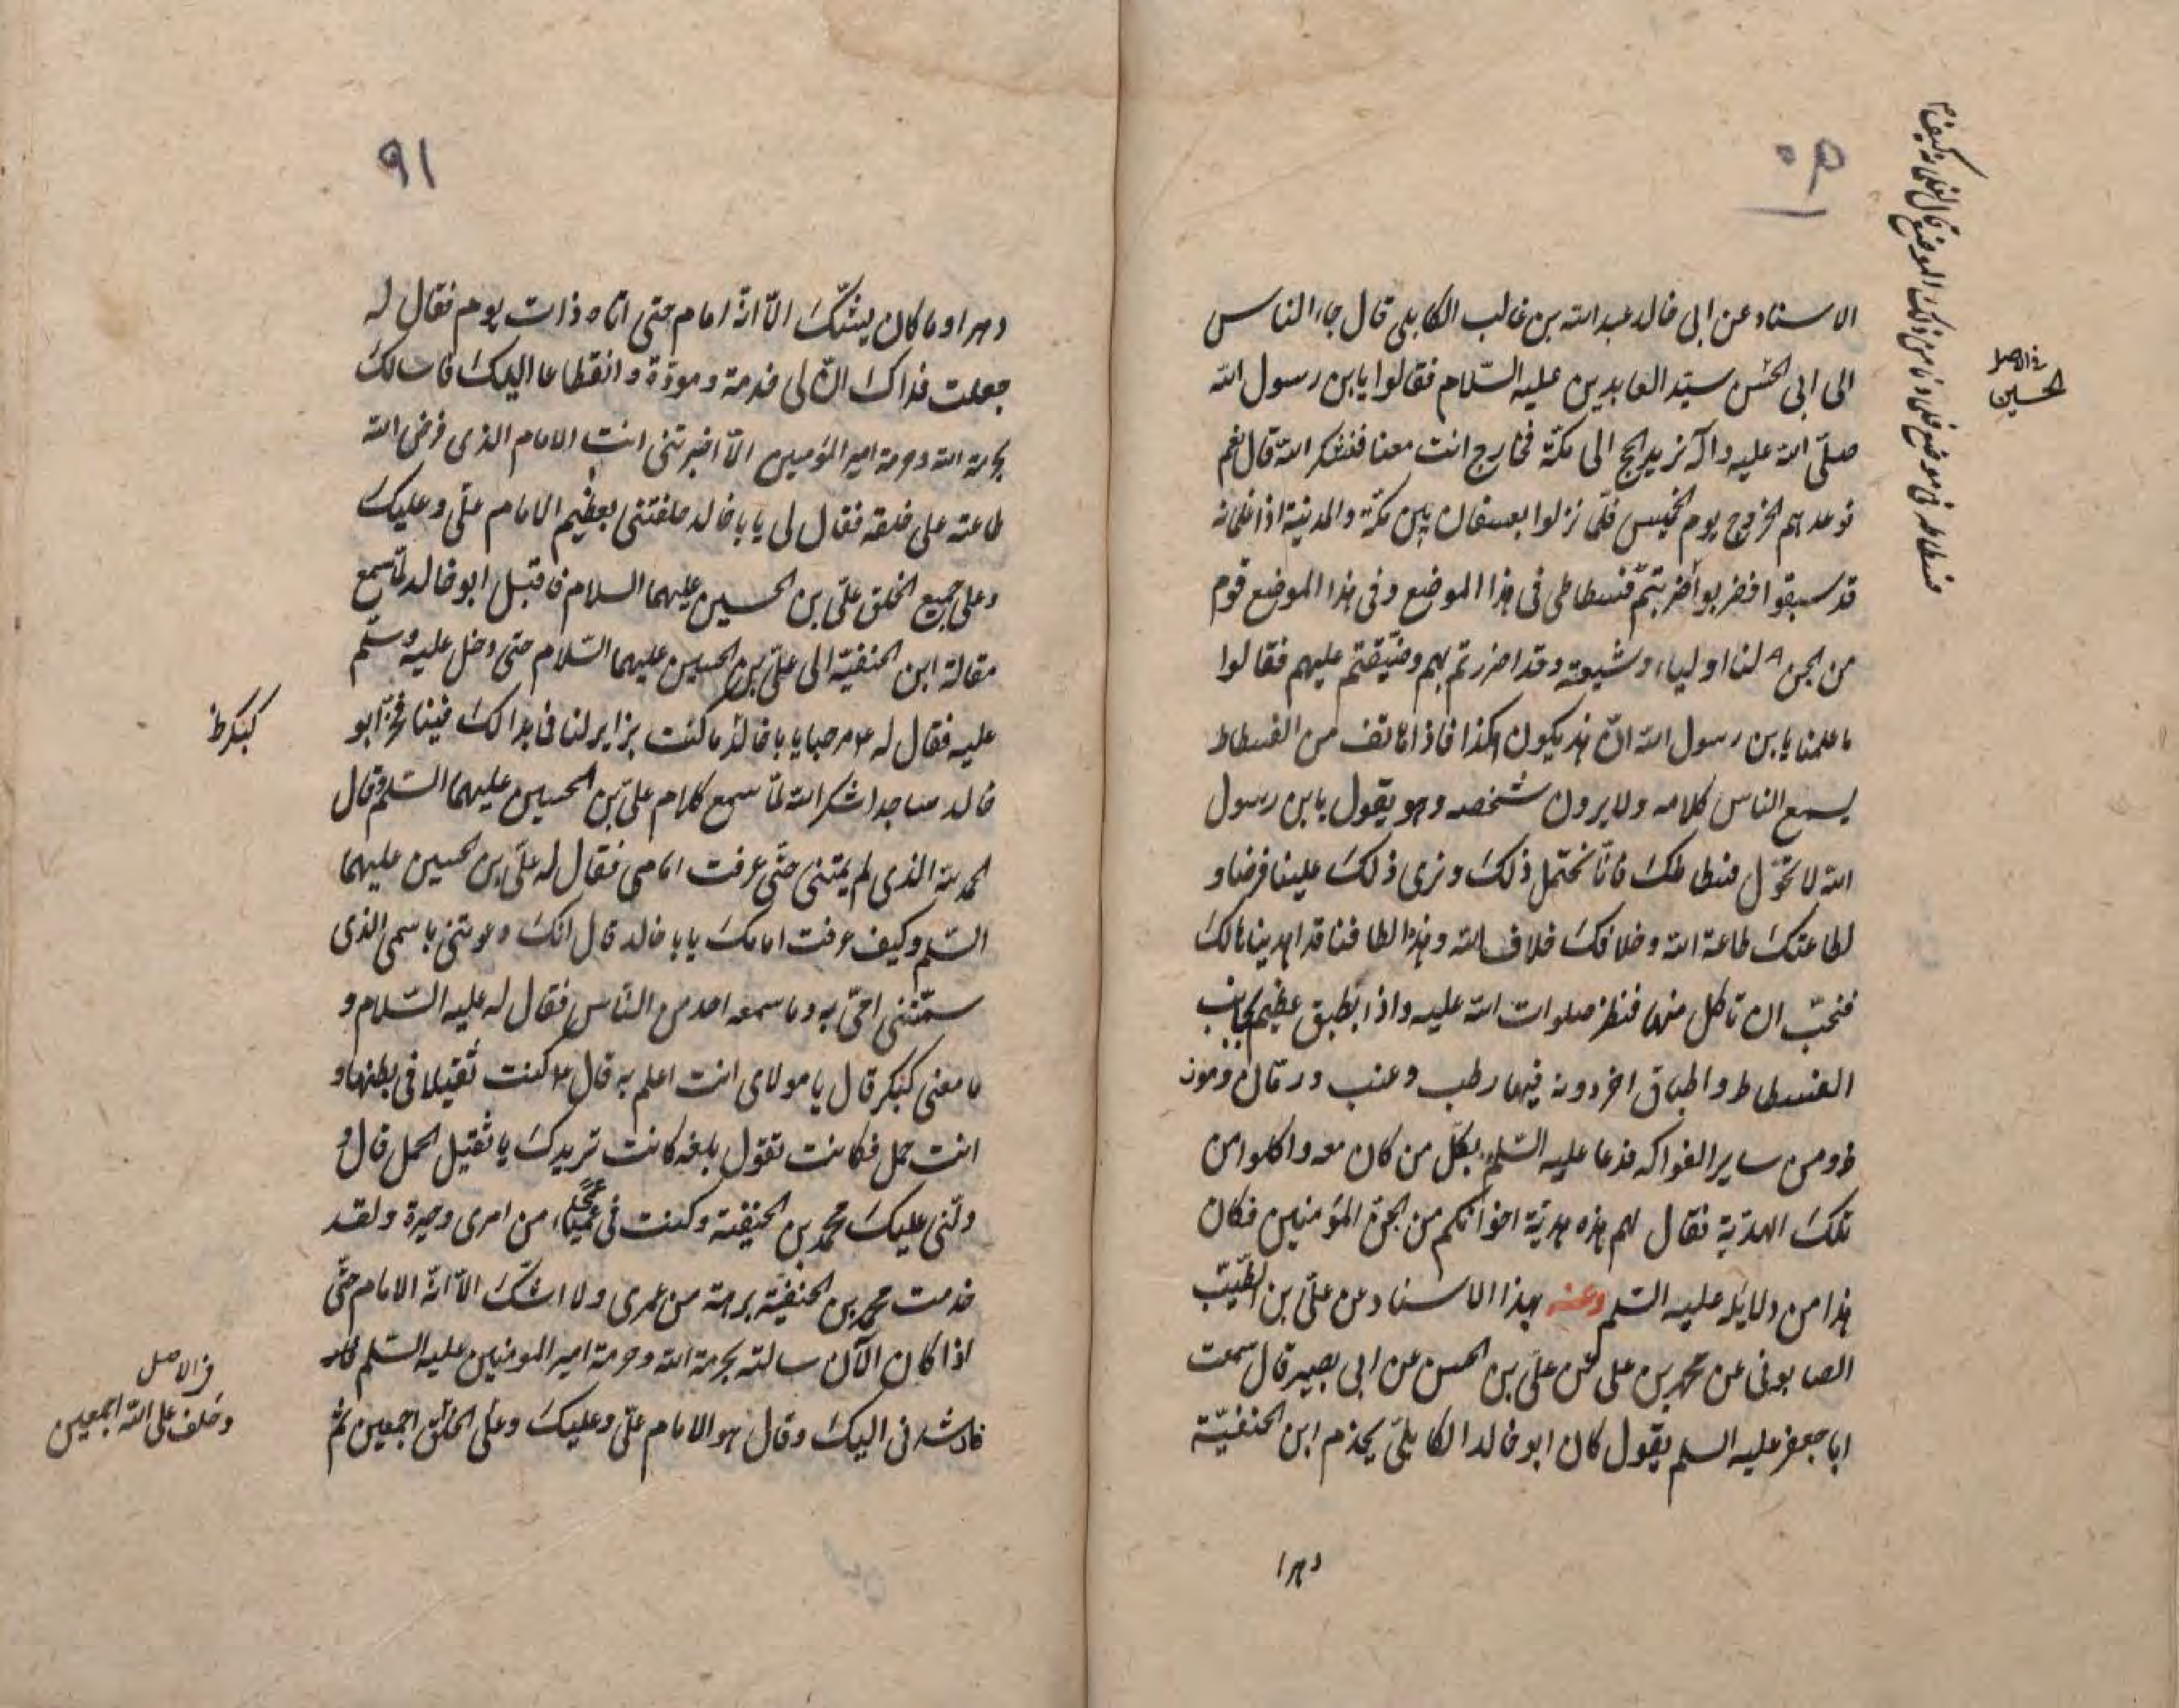 الاسناد عن ابى خالد عبد الله بن غالب الكابلى قال جاء الناس
الى ابى الحسن سيّد العابدين عليه السّلام فقالوا يابن رسول الله
صلّى الله عليه وآله نريد الحج الى مكّة فخارج انت معنا فنشكر الله قال نعم
فوعدهم الخروج يوم الخميس فلمّا نزلوا بعسفان بين مكّة والمدينة اذا غلمانه
قد سبقوا فضربوا فضربتم فسطاطى فى هذا الموضع وفى هذا الموضع قوم
من الجن لنا اولياء وشيعة وقد اضررتم بهم وضيّقتم عليهم فقالوا
ما علمنا يابن رسول الله انّ هذ يكون هكذا فاذا هاتف من الفسطاط
يسمع الناس كلامه ولا يرون شخصه وهو يقول يابن رسول
الله لا تحوّل فسطاطك فانّا نحتمل ذلك ونرى ذلك علينا فرضا و
لطاعتك طاعة الله وخلافك خلاف الله وهذه الطافنا قد اهديناها لك
فنحبّ ان تاكل منها فنظر صلوات الله عليه واذا بطبق عظيم بجانب
الفسطاط واطباق اخر دونه فيها رطب وعنب ورمّان وموز
ومن ساير الفواكه فدعا عليه السّلم بكلّ من كان معه واكلوا من
تلك الهديّة فقال لهم هذه هديّة اخوانكم من الجنّ المؤمنين فكان
هذا من دلايله عليه السّلم وعنه بهذا الاسناد عن علىّ بن الطيّب
الصابونى عن محمد بن على عن علىّ بن الحسن عن ابى بصير قال سمعت
ابا جعفر عليه السلم يقول كان ابو خالد الكابلىّ يخدم ابن الحنفيّة
دهرا
فى الاصل
الحسين
٩١
دهرا وما كان يشكّ الّا انّه امام حتى اتاه ذات يوم فقال له
جعلت فداك انّ لى خدمة ومودّة وانقطاعا اليك فاسالك
بحرمة الله وحرمة امير المؤمنين الّا اخبرتنى انت الامام الذى فرض الله
طاعته على خلقه فقال لى يا با خالد حلفتنى بعظيم الامام علىّ وعليك
وعلى جميع الخلق علىّ بن الحسين عليهما السلام فاقبل ابو خالد لمّا سمع
مقالة ابن الحنفيّة الى علىّ بن الحسين عليهما السّلام حتى دخل عليه وسلّم
عليه فقال له مرحبا يا با خالد ما كنت بزاير لنا فى بدا لك فينا فخرّ ابو
خالد ساجدا شكر الله لمّا سمع كلام علىّ بن الحسين عليهما السّلم وقال
الحمد لله الذى لم يمتنى حتّى عرفت امامى فقال له علىّ بن الحسين عليهما
السّلم وكيف عرفت امامك يا با خالد قال انّك دعوتنى باسمى الذى
سمّتنى امّى به وما سمعه احد من النّاس فقال له عليه السّلام و
ما معنى كنكر قال يا مولاى انت اعلم به قال كنت ثقيلا فى بطنها و
انت حمل فكانت تقول بلغه كانت تريدك يا ثقيل الحمل قال و
دلّنى عليك محمد بن الحنفية وكنت فى عمياء من امرى وحيرة ولقد
خدمت محمد بن الحنفيّة برهة من عمرى ولا اشكّ الّا انّه الامام حتّى
اذا كان الآن سالته بحرمة الله وحرمة امير المومنين عليه السّلم
فارشدنى اليك وقال هو الامام علىّ وعليك وعلى الخلق اجمعين ثمّ
كنكر ظ
فى الاصل
وخلف على الله اجمعين